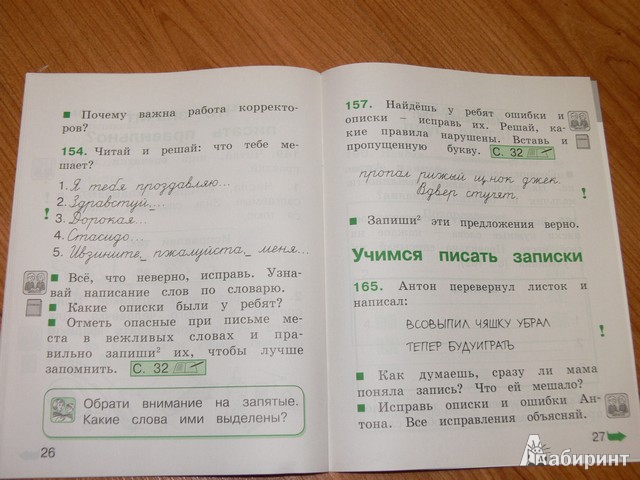 ■ Почему важна работа корректо-
ров?
154. Читай и решай: что тебе ме-
шает?
1. Я тебя проздавляю...
2. Здравствуй_...
! 3. Дорокая...
4. Стасидо...
5. Ивзините_ пжалуйста_ меня...
■ Всё, что неверно, исправь. Узна-
вай написание слов по словарю.
■ Какие описки были у ребят?
■ Отметь опасные при письме ме-
ста в вежливых словах и пра-
вильно запиши² их, чтобы лучше
запомнить. С. 32
Обрати внимание на запятые.
Какие слова ими выделены?
26
157. Найдёшь у ребят ошибки и
описки – исправь их. Решай, ка-
кие правила нарушены. Вставь и
пропущенную букву. С. 32
пропал рижый щ_нок джек.
Вдвер стугят. !
■ Запиши² эти предложения верно.
Учимся писать записки
165. Антон перевернул листок и
написал:
ВСОВЫПИЛ ЧЯШКУ УБРАЛ
ТЕПЕР БУДУИГРАТЬ !
■ Как думаешь, сразу ли мама
поняла запись? Что ей мешало?
■ Исправь описки и ошибки Ан-
тона. Все исправления объясняй.
27
Лабиринт